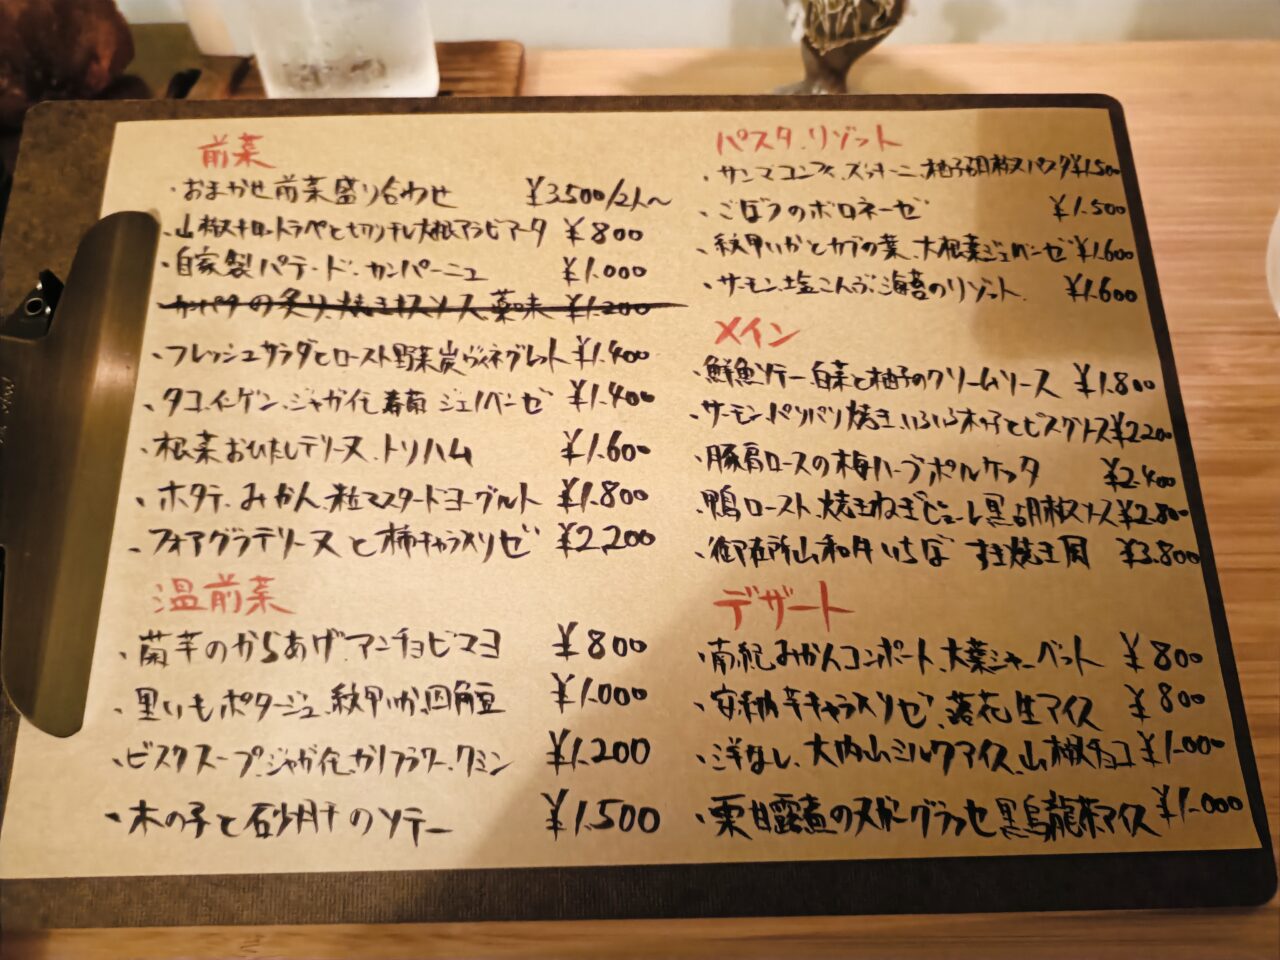 前菜
・おまかせ前菜盛り合わせ ¥3.500/2人〜
・山椒スナロットラペと切り干し大根アラビアータ ¥800
・自家製パテ・ド・カンパーニュ ¥1.000
の炙り、焼きナスソース、薬味 ¥1.200
・フレッシュサラダとロースト野菜 炭ヴィネグレット ¥1.400
・タコ、インゲン、ジャガイモ 春菊ジェノベーゼ ¥1.400
・根菜おひたしテリーヌ、トリハム ¥1.600
・ホタテ、みかん、粒マスタードヨーグルト ¥1.800
・フォアグラテリーヌと柿キャラメリゼ ¥2,200
温前菜
・菊芋のからあげ アンチョビマヨ ¥800
・里いもポタージュ、紋甲いか、四角豆 ¥1.000
・ビスクスープ、ジャガイモ、カリフラワー、クミン ¥1.200
・木の子と砂肝のソテー ¥1.500
パスタ、リゾット
・サンマコンフィ、ズッキーニ、柚子胡椒パスタ ¥1.500
・ごぼうのボロネーゼ ¥1.500
・紋甲いかとカブの葉、大根菜ジェノベーゼ ¥1.600
・サーモン、塩こんぶ、海苔のリゾット ¥1.600
メイン
・鮮魚ソテー 白菜と柚子のクリームソース ¥1.800
・サーモンパリパリ焼き、いろいろ木の子とビスクソース ¥2.200
・豚肩ロースの梅ハーブポルケッタ ¥2.400
・鴨ロースト、焼きねぎピューレ 黒胡椒ソース ¥2.800
・御在所山和牛いちぼ すき焼き風 ¥3.800
デザート
・南紀みかんコンポート、大葉シャーベット ¥800
・安納芋キャラメリゼ、落花生アイス ¥800
・洋なし、大内山ミルクアイス、山椒チョコ ¥1.000
・栗甘露煮のヌガーグラッセ 黒烏龍茶アイス ¥1.000